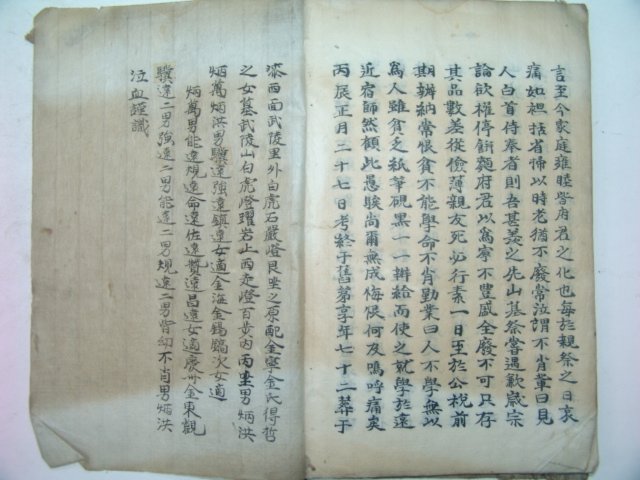 言至今家庭雍睦皆府君之化也每於親祭之日哀
痛如袒括省掃以時老猶不廢常泣謂不肖輩曰見
人白首侍奉者則吾甚羨之先山墓祭嘗遇歉歲宗
論欲權停餅麵府君以爲寧不豊盛全廢不可只存
其品數差從儉薄親友死必行素一日至於公稅前
期辦納常恨貧不能學命不肖勤業曰人不學無以
爲人雖貧乏紙筆硯墨一一辦給而使之就學於遠
近宿師然顧此愚騃尚爾無成悔恨何及嗚呼痛矣
丙辰正月二十七日考終于舊第享年七十二葬于
漆西面武陵里外白虎石嚴嶝艮坐之原配金寧金氏得哲
之女墓武陵山白虎嶝躍岩上西走嶝百步內丙坐男炳洪
炳萬炳洪男驥遠強遠鎭遠女適金海金錫 次女適
炳萬男能遠規遠命遠佐遠贊遠昌遠女適慶州金東觀
驥遠二男強遠二男能遠二男規遠二男皆幼不肖男炳洪
泣血謹識